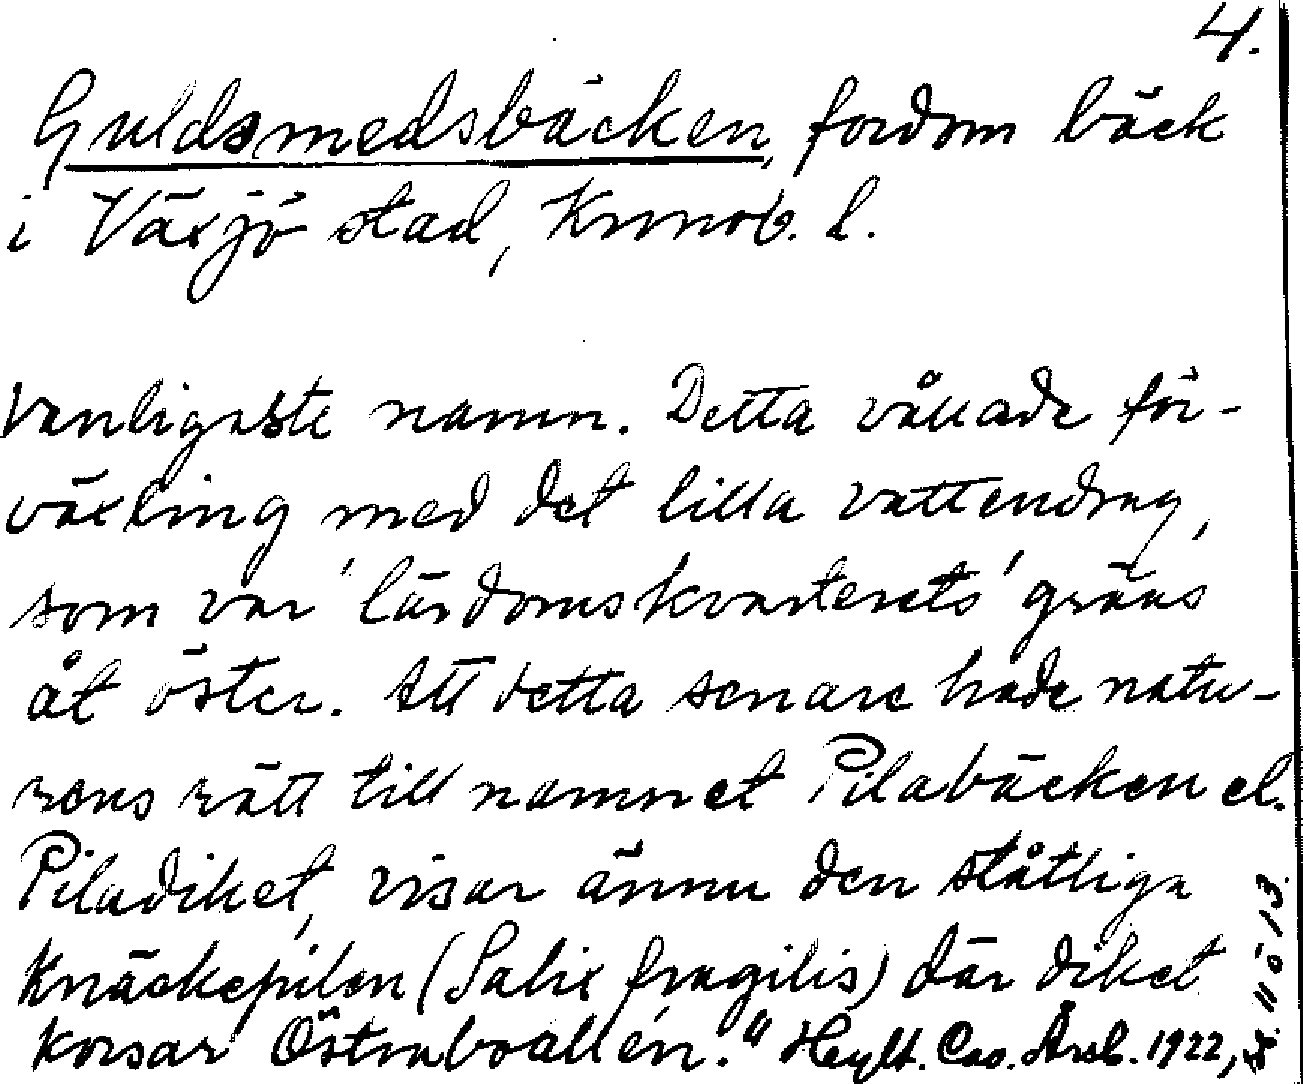 4.
Guldsmedsbäcken, fordom bäck
i Växjö stad, Kronob. l.
vanligaste namn. Detta vållade för-
växling med det lilla vattendrag,
som var 'lärdomskvarterets' gräns
åt öster. Att detta senare hade natu-
rens rätt till namnet Pilabäcken el.
Piladiket, visar ännu den ståtliga
Knäckepilen (Salix fragilis) där diket
korsar Östraboallén." Heylt. Cav. Årsb. 1922,
s. 11 o 13.